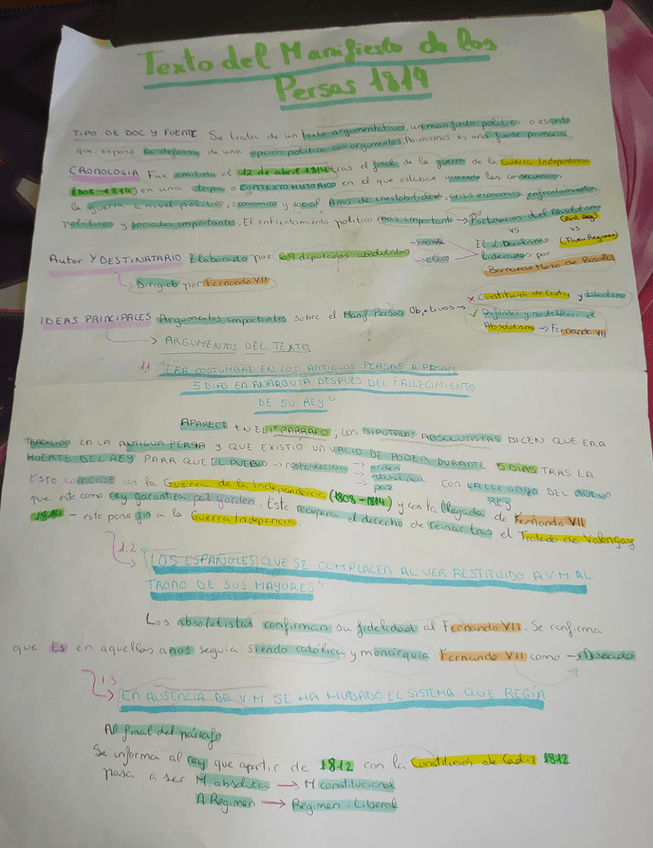 Texto del Manifiesto de los
Persas 1814
TIPO DE DOC Y FUENTE Se trata de un texto argumentativo, un manifiesto político o escrito
que expone la defensa de una opinión política con argumentos. Asimismo es una fuente primaria
CRONOLOGIA Fue emitido el 12 de abril 1814 tras el final de la guerra de la Guerra Independencia
(1808-1814) en una etapa o CONTEXTO HISTÓRICO en el que estaban las consecuencias
la guerra a nivel político, económico y social Años de inestabilidad, crisis económica enfrentamientos
políticos y sociales importantes. El enfrentamiento político más importante → Partidarios del Absolutismo
(Ant Reg)
vs vs
El Liberalismo (Nuevo Régimen)
Autor Y DESTINATARIO Elaborado por 69 diputados absolutistas
liderados por
Bernardo Mozo de Rosales
Dirigido por Fernando VII
IDEAS PRINCIPALES Argumentos importantes sobre el Manif Persas Objetivos → x Constitución de Cádiz y Liberalismo
✓ Defender y el
Absolutismo → Fernando VII
→ ARGUMENTOS DEL TEXTO
1.1 "ERA COSTUMBRE EN LOS ANTIGUOS PERSAS A PASAR
5 DIAS EN ANARQUÍA DESPUES DEL FALLECIMIENTO
DE SU REY"
APARECE EN EL 1º PÁRRAFO, LOS DIPUTADOS ABSOLUTISTAS DICEN QUE ERA
TRADICIÓN EN LA ANTIGUA PERSIA Y QUE EXISTIÓ UN VACIO DE PODER DURANTE 5 DIAS TRAS LA
MUERTE DEL REY PARA QUE EL PUEBLO → → orden
→ estabilidad
→ paz
CON LA LLEGADA DEL NUEVO
REY
Esto coincide con la Guerra de la Independencia (1808-1814) y con la llegada de Fernando VII
que este como rey garantiza paz y orden. Este recupera el derecho de reinar tras el Tratado de Valençay
1814 - este pone fin a la Guerra Indepencia.
1.2 "LOS ESPAÑOLES QUE SE COMPLACEN AL VER RESTITUIDO A V.M AL
TRONO DE SUS MAYORES"
Los absolutistas confirman su fidelidad al Fernando VII. Se confirma
que Es en aquellos años seguía siendo católica y monárquia Fernando VII como → Deseado
1.3
EN AUSENCIA DE V.M SE HA MUDADO EL SISTEMA QUE REGÍA
Al final del párrafo
Se informa al rey que apartir de 1812 con la Constitución de Cadiz 1812
pasa a ser M absoluta → M constitucional
A Regimen → Regimen Liberal